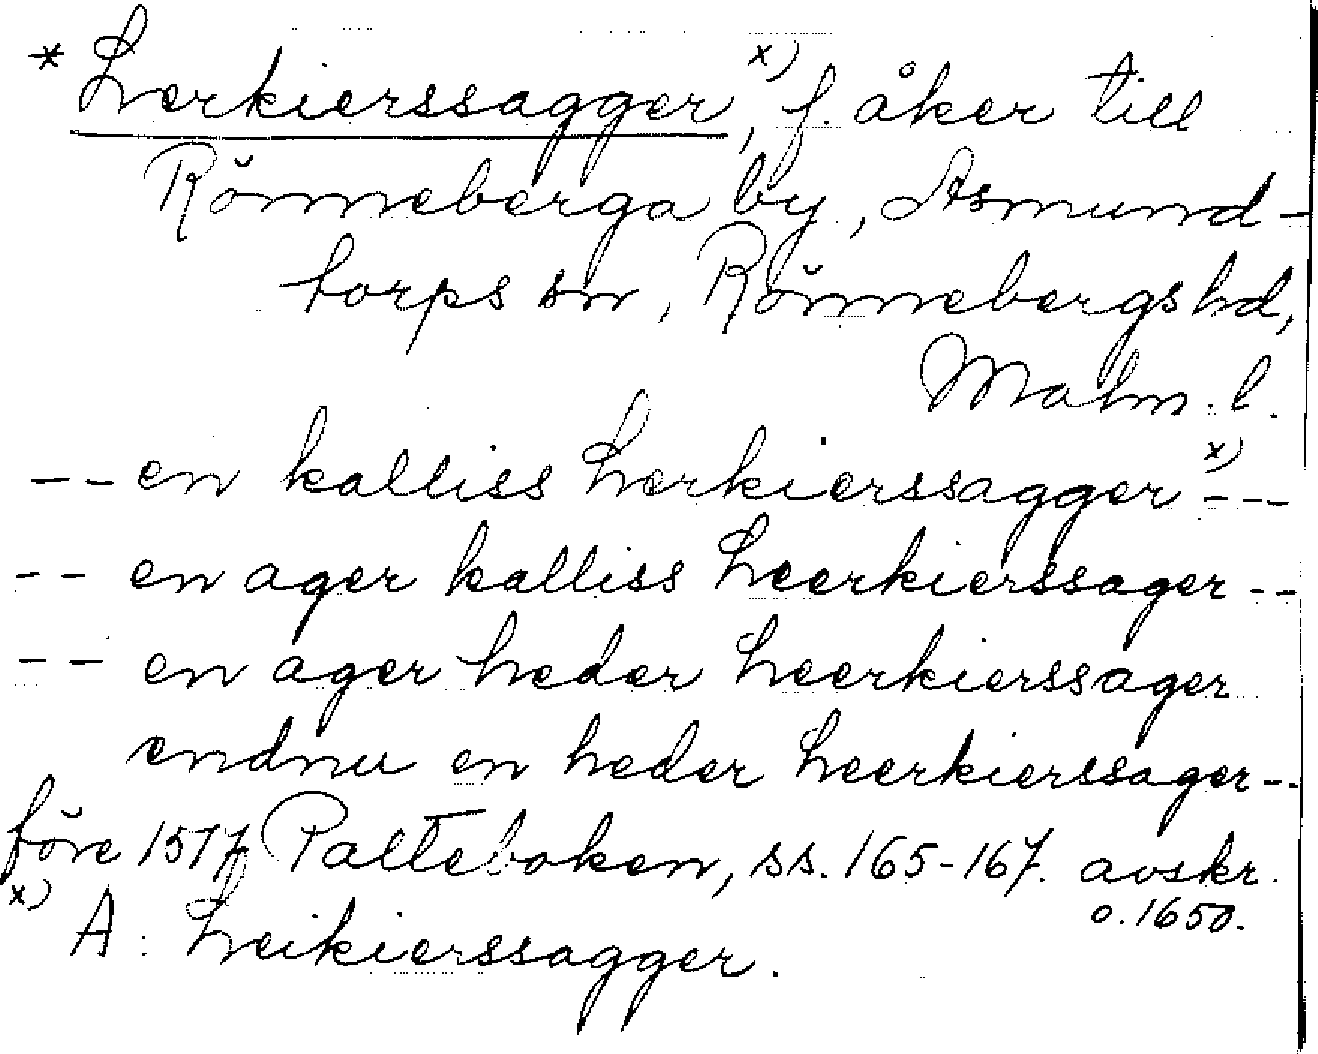 * herkierssagger, x) f. åker till
Rönneberga by, Asmund-
torps sn, Rönnebergs hd,
Malm. l.
-- en kalliss herkierssagger x) ---
-- en ager kalliss heerkierssager --
-- en ager heder heerkierssager
endnu en heder heerkierssager --
före 1577 Palteboken, ss. 165-167. avskr.
o. 1650.
x) A: heikierssagger.